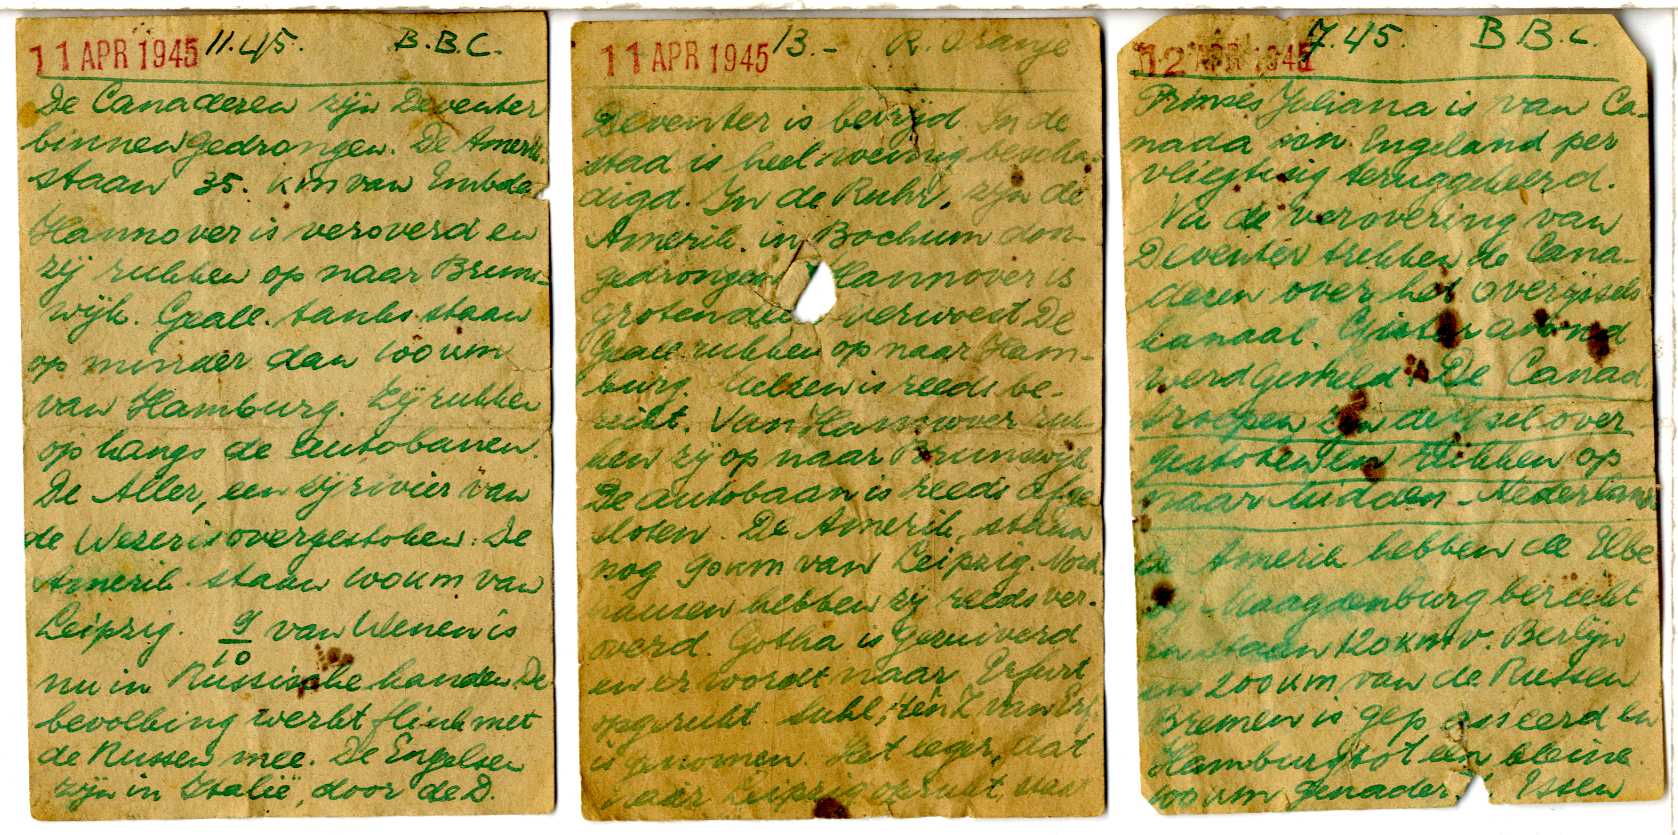 11 APR 1945 11.45. B.B.C.
De Canadezen zijn Deventer
binnen gedrongen. De Amerik.
staan 35. km van Embde
Hannover is veroverd en
zij rukken op naar Bruns-
wijk. Geall. tanks staan
op minder dan 100 km
van Hamburg. Zij rukken
op langs de autobanen.
De Aller, een zijrivier van
de Wezer is overgestoken. De
Amerik. staan 100 km van
Leipzig. 9/10 van Wenen is
nu in Russische handen. De
bevolking werkt flink met
de Russen mee. De Engelsen
zijn in Italië, door de D.
11 APR 1945 13.- R. Oranje
Deventer is bevrijd In de
stad is heel weinig bescha-
digd. In de Ruhr, zijn de
Amerik. in Bochum door-
gedrongen Hannover is
grotendeels verwoest De
Geall. rukken op naar Ham-
burg. Uelzen is reeds be-
reikt. Van Hannover ruk-
ken zij op naar Brunswijk
De autobaan is reeds afge
sloten. De Amerik. staan
nog 90 km van Leipzig. Nord
hausen hebben zij reeds ver-
overd. Gotha is gezuiverd
en er wordt naar Erfurt
opgerukt Suhl, ten Z van Erf.
is genomen. Het leger, dat
naar Leipzig oprukt, staat
12 APR 1945 7.45. B.B.C.
Prinses Juliana is van Ca-
nada in Engeland per
vliegtuig teruggekeerd.
Na de verovering van
Deventer trekken de Cana-
dezen over het Overijssels
kanaal. Gisteravond
werd gemeld: De Canad
troepen zijn de IJsel over
gestoken en rukken op
naar Midden-Nederland
de Amerik hebben de Elbe
bij Maagdenburg bereikt
en staan 120 km v. Berlijn
en 200 km van de Russen
Bremen is gepasseerd en
Hamburg tot een kleine
100 km genaderd. Essen